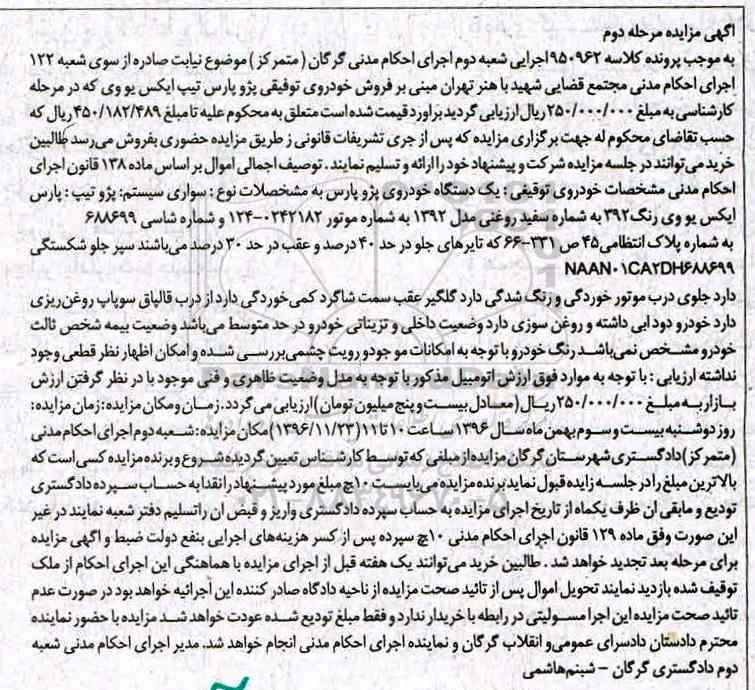 آگهی مزایده مرحله دوم
به موجب پرونده کلاسه ۹۵۰۹۶۲ اجرایی شعبه دوم اجرای احکام مدنی گرگان (متمرکز) موضوع نیابت صادره از سوی شعبه ۱۲۲
اجرای احکام مدنی مجتمع قضایی شهید با هنر تهران مبنی بر فروش خودروی توقیفی پژو پارس تیپ ایکس یو وی که در مرحله
کارشناسی به مبلغ ۲۵۰/۰۰۰/۰۰۰ ریال ارزیابی گردید براورد قیمت شده است متعلق به محکوم علیه تا مبلغ ۴۵۰/۱۸۲/۴۸۹ ریال که
حسب تقاضای محکوم له جهت برگزاری مزایده که پس از جری تشریفات قانونی ز طریق مزایده حضوری بفروش می‌رسد طالبین
خرید می‌توانند در جلسه مزایده شرکت و پیشنهاد خود را ارائه و تسلیم نمایند. توصیف اجمالی اموال بر اساس ماده ۱۳۸ قانون اجرای
احکام مدنی مشخصات خودروی توقیفی: یک دستگاه خودروی پژو پارس به مشخصلات نوع: سواری سیستم: پژو تیپ: پارس
ایکس یو وی رنگ ۳۹۲ به شماره سفید روغنی مدل ۱۳۹۲ به شماره موتور ۰۲۴۲۱۸۲-۱۲۴ و شماره شاسی ۶۸۸۶۹۹
به شماره پلاک انتظامی ۴۵ ص ۳۳۱-۶۶ که تایرهای جلو در حد ۴۰ درصد و عقب در حد ۳۰ درصد می‌باشند سپر جلو شکستگی
NAAN۰۱CA۲DH۶۸۸۶۹۹
دارد جلوی درب موتور خوردگی و رنگ شدگی دارد گلگیر عقب سمت شاگرد کمی خوردگی دارد از درب قالپاق سوپاپ روغن‌ریزی
دارد خودرو دود ابی داشته و روغن سوزی دارد وضعیت داخلی و تزیناتی خودرو در حد متوسط می‌باشد وضعیت بیمه شخص ثالث
خودرو مشخص نمی‌باشد رنگ خودرو با توجه به امکانات موجود و رویت چشمی بررسی شده و امکان اظهار نظر قطعی وجود
نداشته ارزیابی: با توجه به موارد فوق ارزش اتومبیل مذکور با توجه به مدل وضعیت ظاهری و فنی موجود با در نظر گرفتن ارزش
بازار به مبلغ ۲۵۰/۰۰۰/۰۰۰ ریال (معادل بیست و پنج میلیون تومان) ارزیابی می گردد. زمان و مکان مزایده: زمان مزایده:
روز دوشنبه بیست و سوم بهمن ماه سال ۱۳۹۶ ساعت ۱۰ تا ۱۱ (۱۳۹۶/۱۱/۲۳) مکان مزایده: شعبه دوم اجرای احکام مدنی
(متمرکز) دادگستری شهرستان گرگان مزایده از مبلغی که توسط کارشناس تعیین گردیده شروع و برنده مزایده کسی است که
بالاترین مبلغ را در جلسه زایده قبول نماید برنده مزایده می‌بایست ۱۰چ مبلغ مورد پیشنهاد را نقدا به حساب سپرده دادگستری
تودیع و مابقی ان ظرف یکماه از تاریخ اجرای مزایده به حساب سپرده دادگستری واریز و قبض ان راتسلیم دفتر شعبه نمایند در غیر
این صورت وفق ماده ۱۲۹ قانون اجرای احکام مدنی ۱۰چ سپرده پس از کسر هزینه‌های اجرایی بنفع دولت ضبط و اگهی مزایده
برای مرحله بعد تجدید خواهد شد. طالبین خرید می‌توانند یک هفته قبل از اجرای مزایده با هماهنگی این اجرای احکام از ملک
توقیف شده بازدید نمایند تحویل اموال پس از تائید صحت مزایده از ناحیه دادگاه صادر کننده این اجرائیه خواهد بود در صورت عدم
تائید صحت مزایده این اجرا مسولیتی در رابطه با خریدار ندارد و فقط مبلغ تودیع شده عودت خواهد شد مزایده با حضور نماینده
محترم دادستان دادسرای عمومی و انقلاب گرگان و نماینده اجرای احکام مدنی انجام خواهد شد. مدیر اجرای احکام مدنی شعبه
دوم دادگستری گرگان - شبنم هاشمی